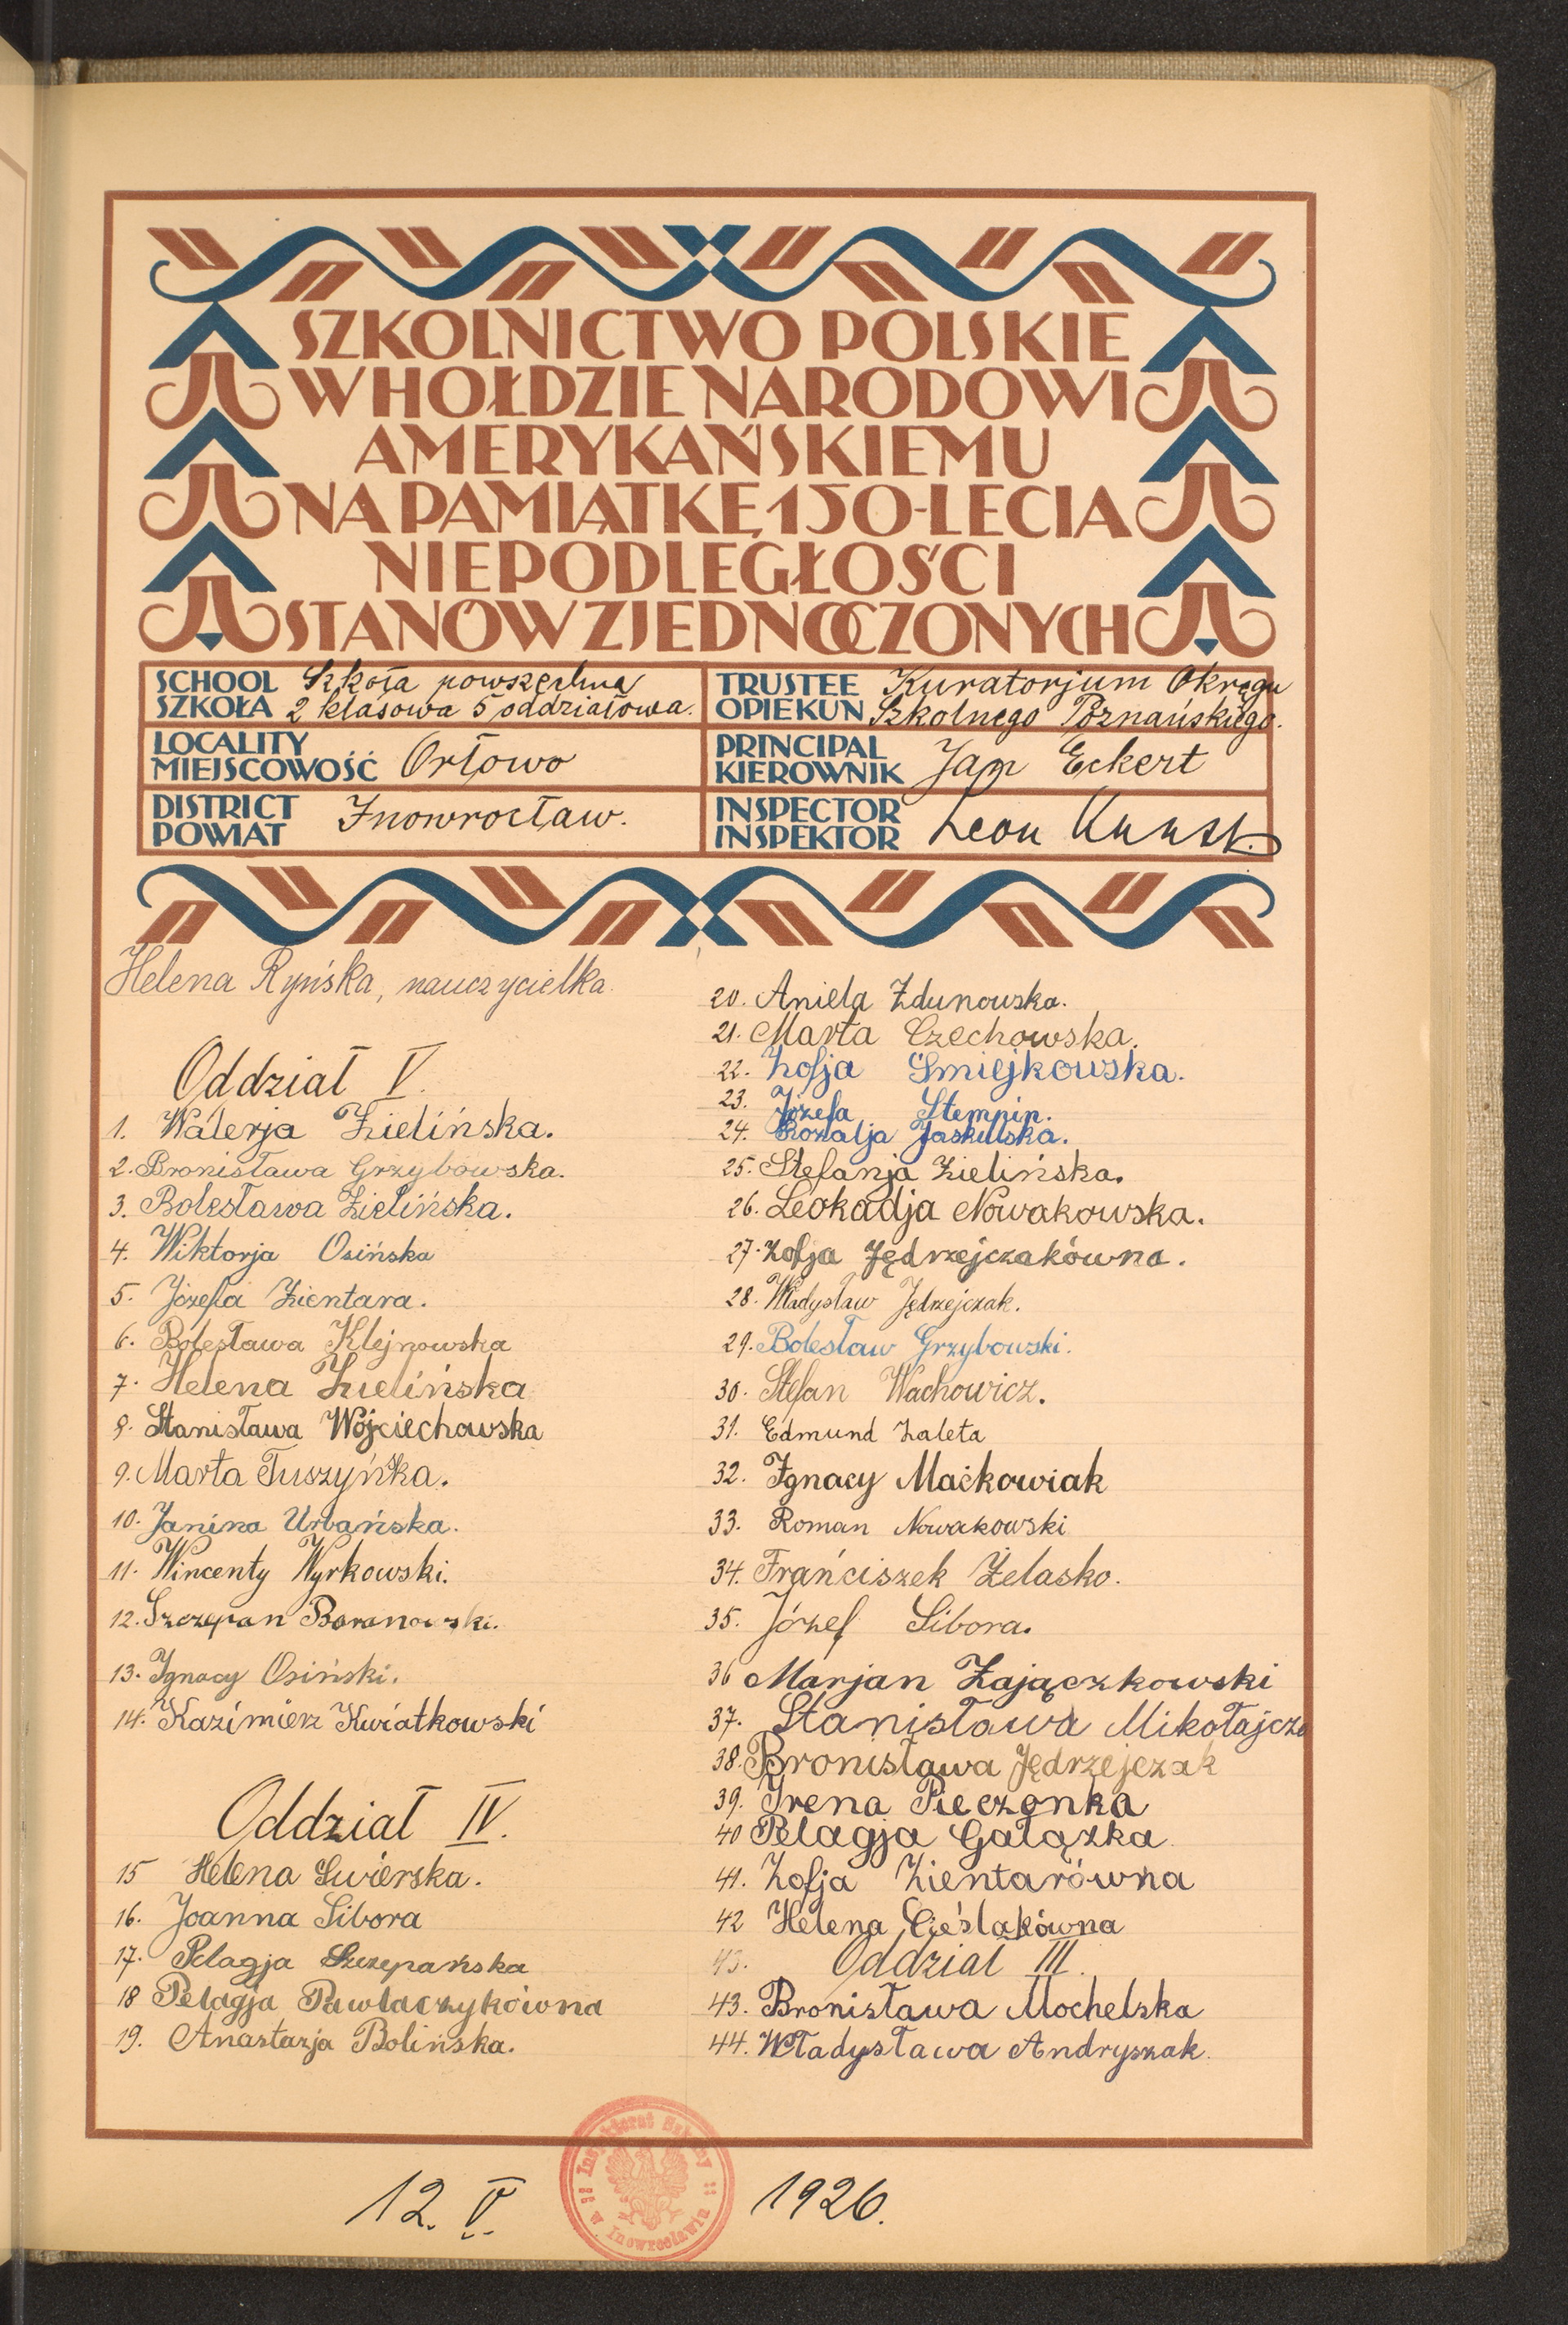 SZKOLNICTWO POLSKIE
W HOŁDZIE NARODOWI
AMERYKAŃSKIEMU
NA PAMIĄTKĘ 150-LECIA
NIEPODLEGŁOŚCI
STANÓW ZJEDNOCZONYCH
SCHOOL
SZKOŁA
Szkoła powszechna
2 klasowa 5 oddziałowa.
TRUSTEE
OPIEKUN
Kuratorjum Okręgu
Szkolnego Poznańskiego.
LOCALITY
MIEJSCOWOŚĆ
Orłowo
PRINCIPAL
KIEROWNIK
Jan Eckert
DISTRICT
POWIAT
Inowrocław.
INSPECTOR
INSPEKTOR
Leon
Helena Ryńska, nauczycielka.
Oddział V.
1. Walerja Zielińska.
2. Bronisława Grzybowska.
3. Bolesława Zielińska.
4. Wiktorja Osińska
5. Józefa Zientara.
6. Bolesława Klejnowska
7. Helena Zielińska
8. Stanisława Wojciechowska
9. Marta Tuszyńska.
10. Janina Urbańska.
11. Wincenty Wyrkowski.
12. Szczepan Baranowski.
13. Ignacy Osiński.
14. Kazimierz Kwiatkowski
Oddział IV.
15 Helena Swierska.
16. Joanna Sibora
17. Pelagja Szczepańska
18 Pelagja Pawlaczykówna
19. Anastazja Bolińska.
20. Aniela Zdunowska.
21. Marta Czechowska.
22. Zofja Smiejkowska.
23. Józefa Stempin.
24. Rozalja Jaskulska.
25. Stefanja Zielińska.
26. Leokadja Nowakowska.
27. Zofja Jędrzejczakówna.
28. Władysław Jędrzejczak.
29. Bolesław Grzybowski.
30. Stefan Wachowicz.
31. Edmund Zaleta
32. Ignacy Maćkowiak
33. Roman Nowakowski
34. Franciszek Żelasko.
35. Józef Sibora.
36 Marjan Zajączkowski
37. Stanisława Mikołajcza
38. Bronisława Jędrzejczak
39. Irena Pieczonka
40 Pelagja Gałązka
41. Zofja Zientarówna
42 Helena Cieślakówna
43. Oddział III.
43. Bronisława Mochelska
44. Władysława Andryszak.
12. V. 1926.
Inspektorat Szkolny
w Inowrocławiu